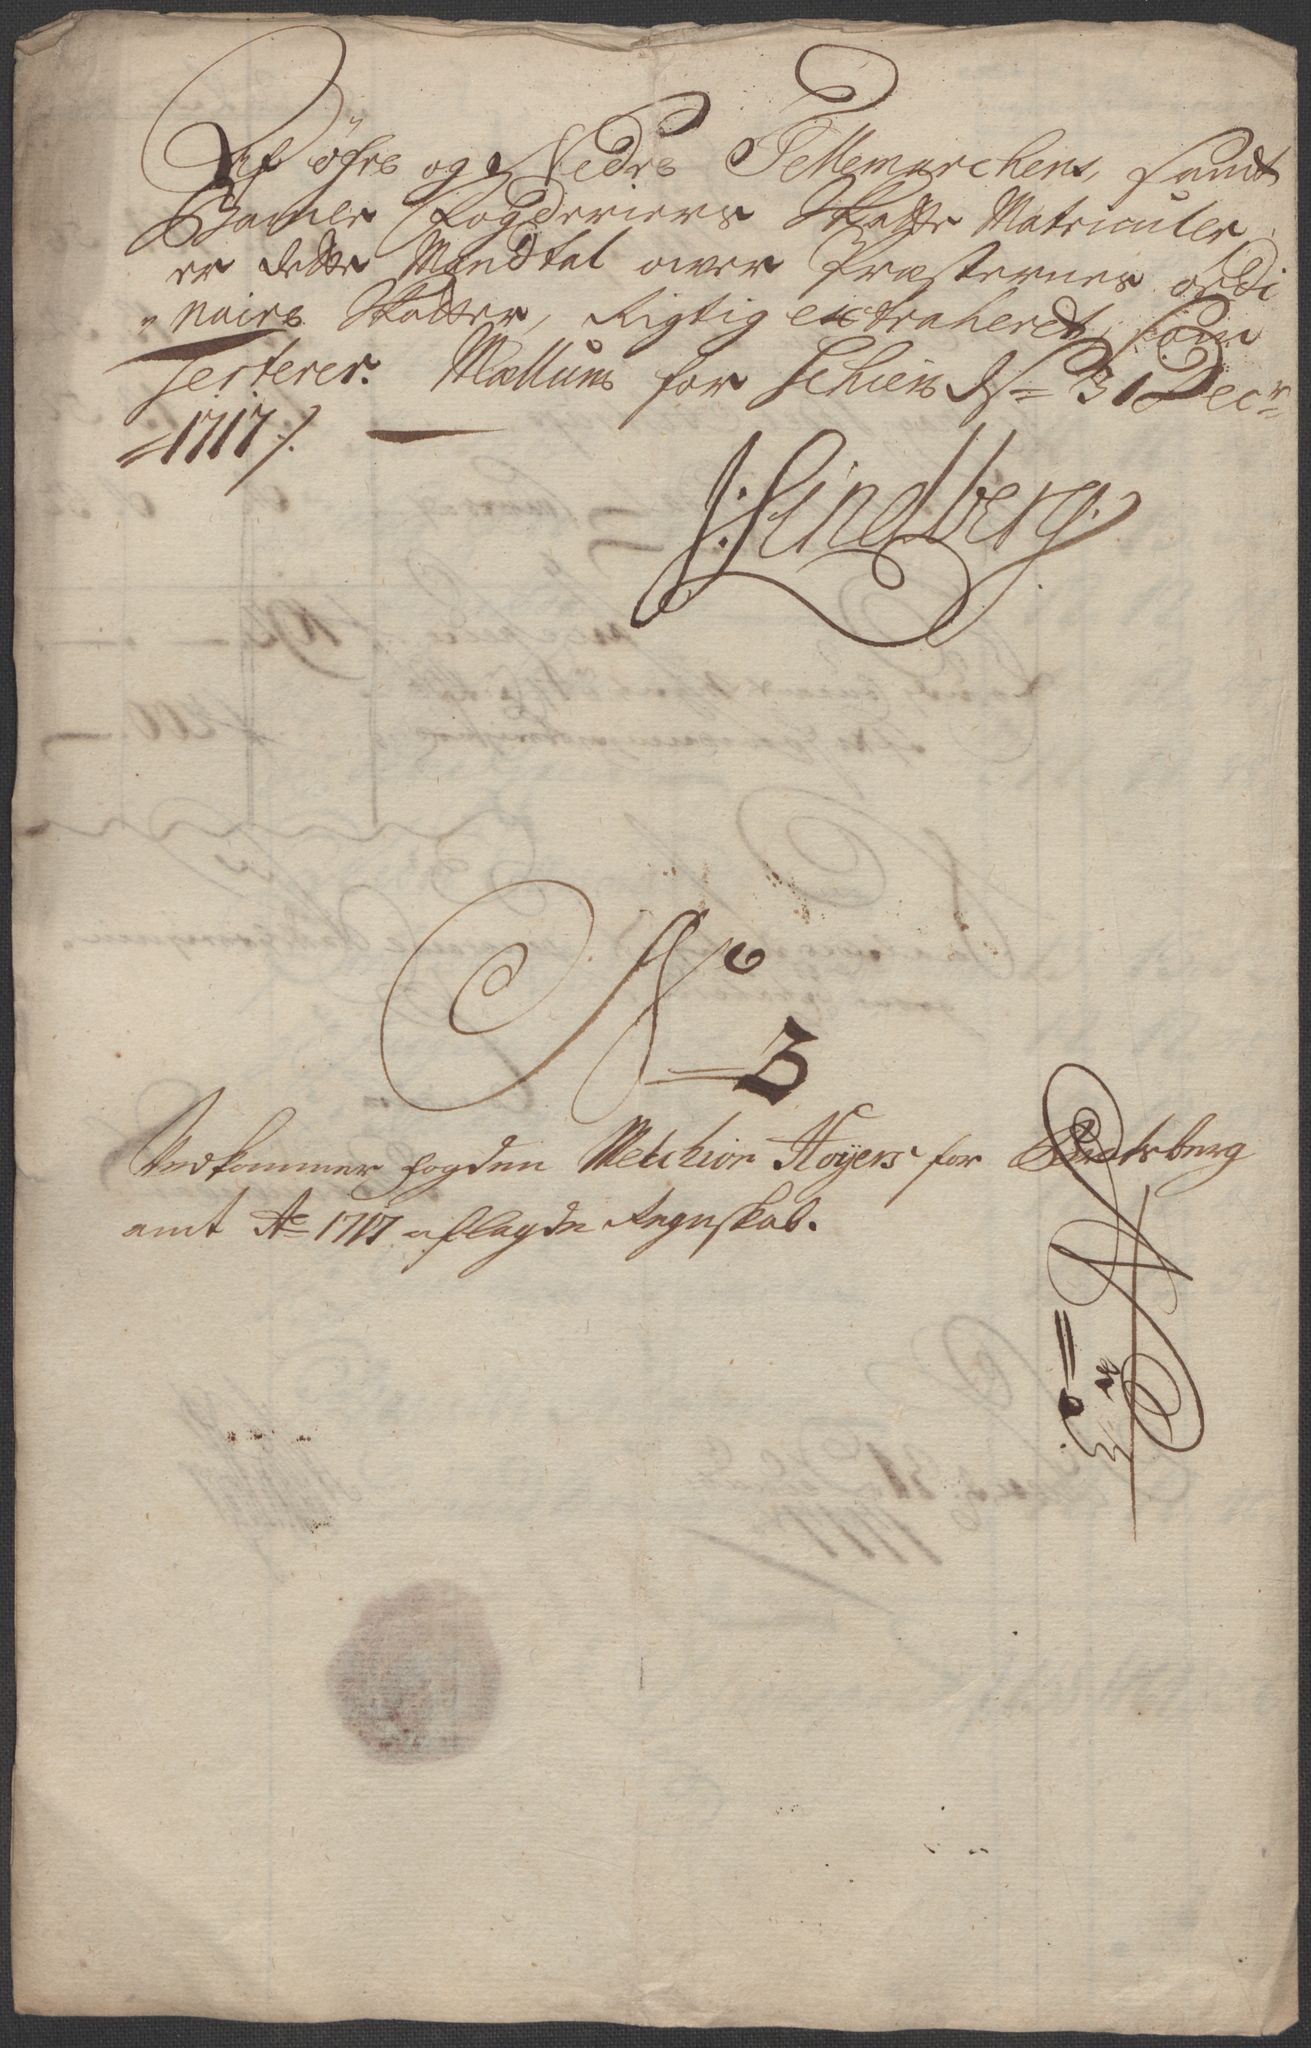 Af öfre og Nedre Tellemarchens, samdt
Bamle Fogderiers Skatte Matriculer,
er dette Mandtal over Præsternes ordi
"naire Skatter, Rigtig extraherdt, som
Testerer. Mællum for Schien ds= 31 Decr=
=1717/.
J: Lindberg.
No
3
Vedkommer fogden Melchior Høyers for Bratsberg
amt Ao 1717 aflagde Regnskab.